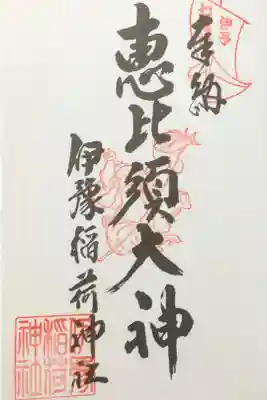 奉納
恵比須大神
伊豫稲荷神社
伊予
稲荷
神社